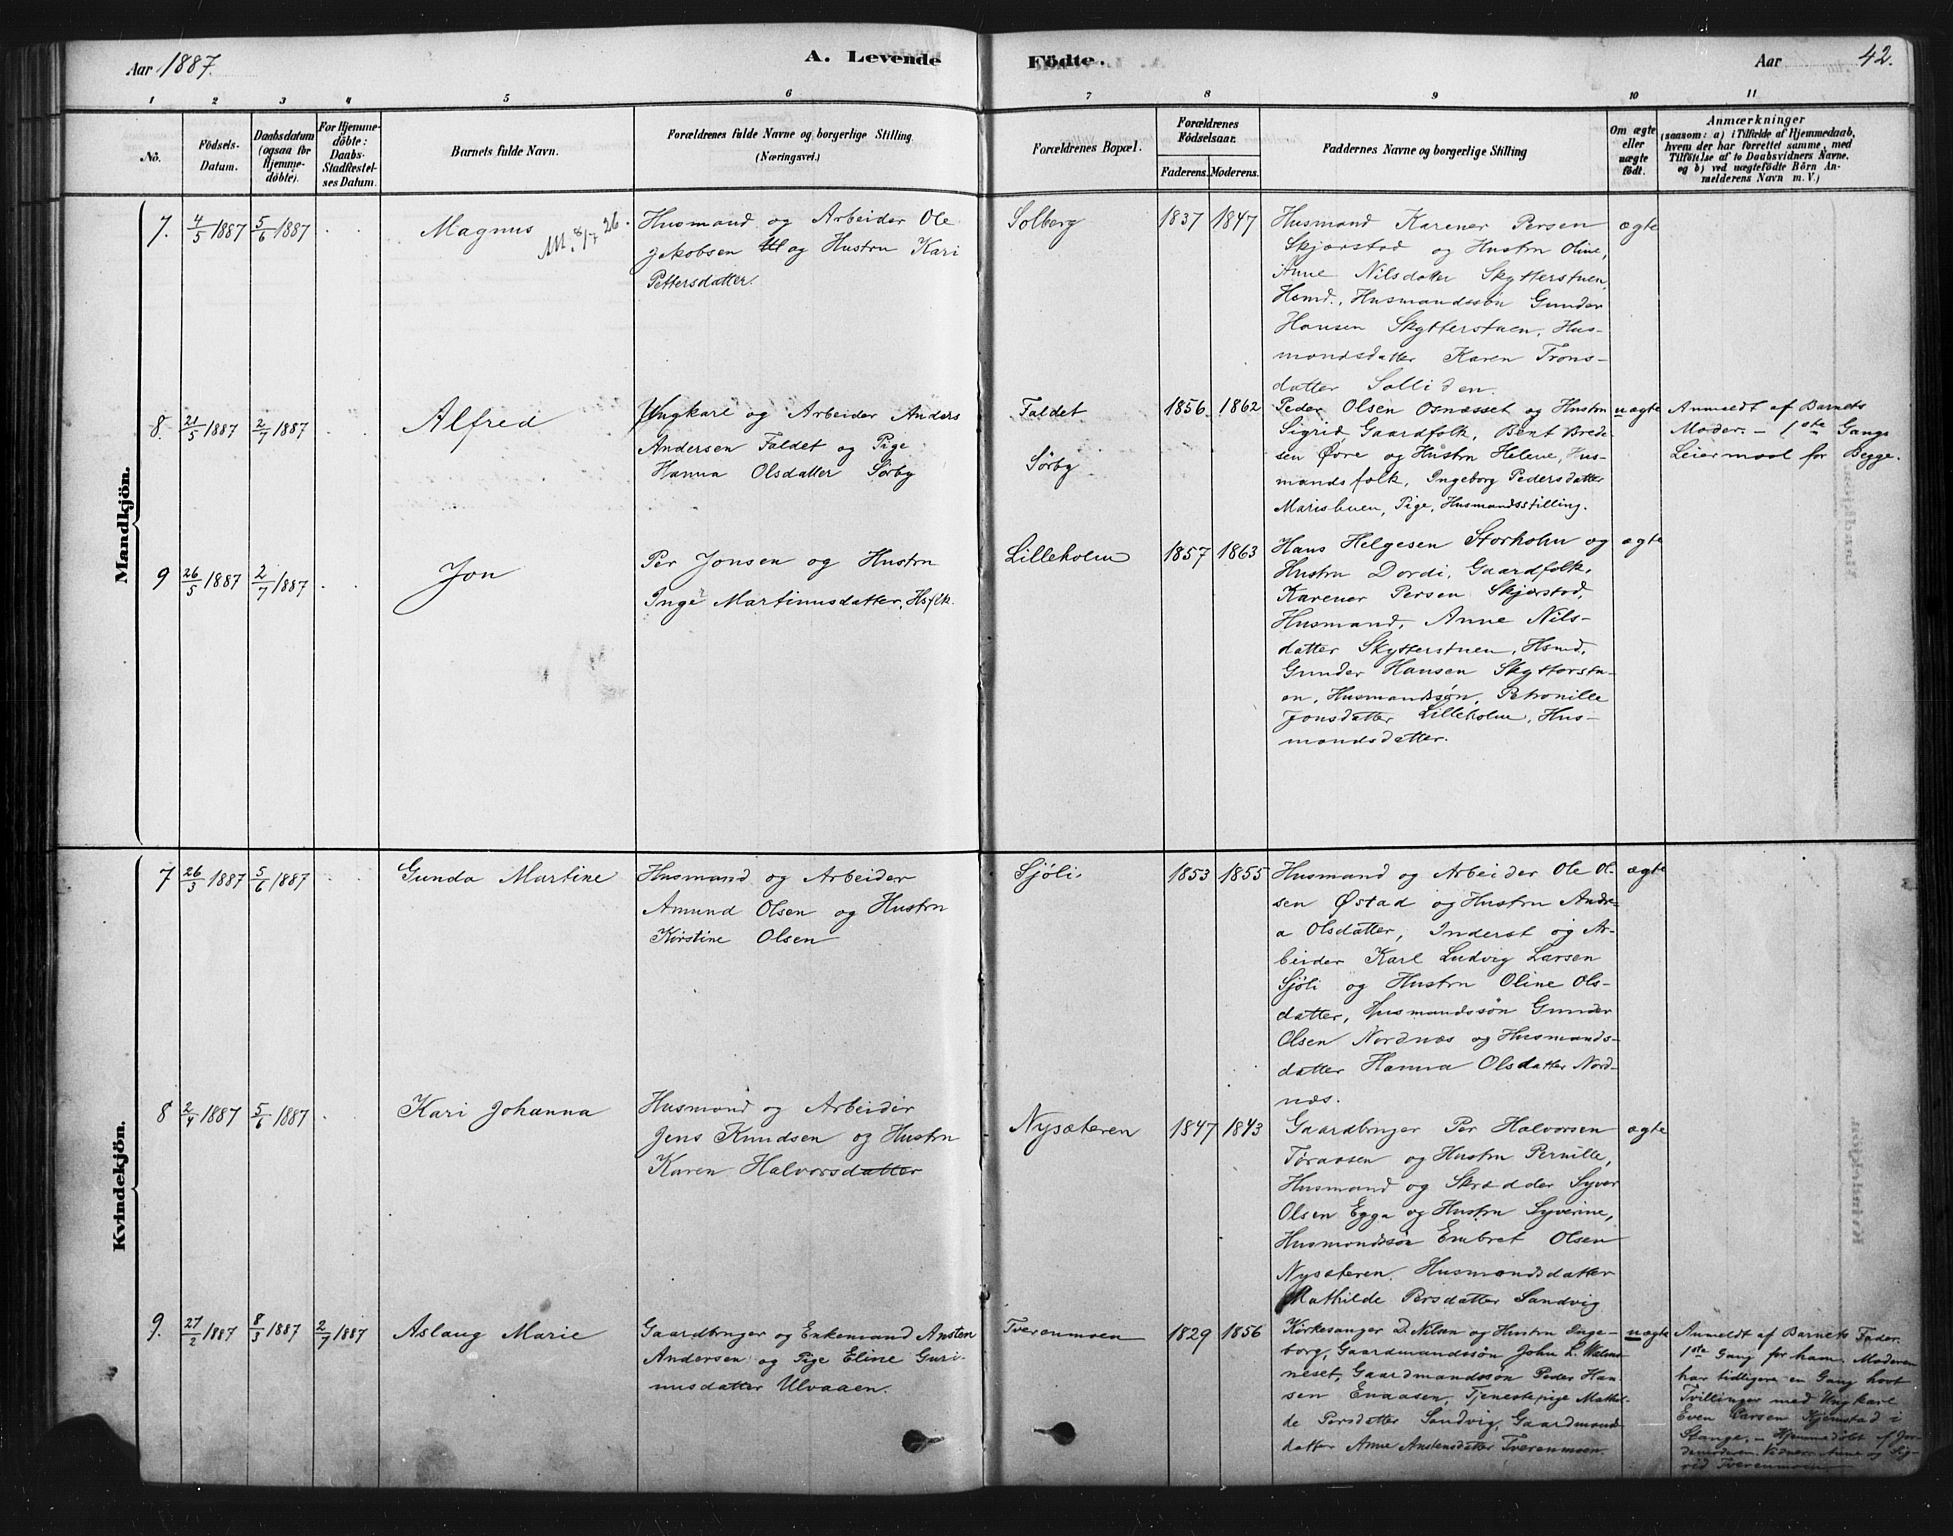 Aar 1887.
A. Levende Födte.
Aar 42.
1 2 3 4 5 6 7 8 9 10 11
No.
Födsels-
Datum.
Daabsdatum
(ogsaa for
Hjemme-
döbte).
For Hjemme-
döbte:
Daabs-
Stadfæstel-
ses Datum.
Barnets fulde Navn.
Forældrenes fulde Navne og borgerlige Stilling.
(Næringsvei.)
Forældrenes Bopæl.
Forældrenes
Födselsaar.
Faderens. Moderens.
Faddernes Navne og borgerlige Stilling
Om ægte
eller
uægte
födt.
Anmærkninger
(saasom: a) i Tilfælde af Hjemmedaab,
hvem der har forrettet samme, med
Tilföielse af to Daabsvidners Navne.
og b) ved uægtefödte Börn An-
melderens Navn m. V.)
Mandkjön.
7. 4/5 1887 5/6 1887
Magnus M. 8/7 26.
Husmand og Arbeider Ole
Jakobsen og Hustru Kari
Pettersdatter.
Solberg 1837 1847
Husmand Karener Persen
Skjærstad og Hustru Oline,
Anne Nilsdatter Skytterstuen,
Hsmd., Husmandssön Gunder
Hansen Skytterstuen, Hus-
mandsdatter Karen Trons-
datter Solliden.
ægte
8. 21/5 1887 2/7 1887
Alfred
Ungkarl og Arbeider Anders
Andersen Faldet og Pige
Hanna Olsdatter Sörby
Faldet
Sörby
1856. 1862
Peder Olsen Osnæsset og Hustru
Sigrid Gaardfolk, Bent Brede-
sen Øvre og Hustru Helene, Hus-
mandsfolk, Ingeborg Pedersdatter
Marisbuen, Pige, Husmandsstilling.
uægte
Anmeldt af Barnets
Moder. – 1ste Gangs
Leiermaal for Begge.
9 26/5 1887 2/7 1887
Jon
Per Jonsen og Hustru
Inge Martinusdatter, Hsflk.
Lilleholm 1857 1863
Hans Helgesen Storholm og
Hustru Dordi, Gaardfolk,
Karener Persen Skjærstad,
Husmand, Anne Nils-
datter Skytterstuen, Hsmd,
Gunder Hansen Skytterstu-
en, Husmandssön, Petronille
Jonsdatter Lilleholm, Hus-
mandsdatter.
ægte
Kvindekjön.
7 26/3 1887 5/6 1887
Gunda Martine
Husmand og Arbeider
Amund Olsen og Hustru
Kirstine Olsen
Sjöli 1853 1855
Husmand og Arbeider Ole Ol-
sen Østad og Hustru Andre-
a Olsdatter, Inderst og Ar-
beider Karl Ludvig Larsen
Sjöli og Hustru Oline Ols-
datter, Husmandssön Gunder
Olsen Nordnæs og Husmands-
datter Hanna Olsdatter Nord-
næs.
ægte
8 2/4 1887 5/6 1887
Kari Johanna
Husmand og Arbeider
Jens Knudsen og Hustru
Karen Halvorsdatter
Nysæteren 1847 1843
Gaardbruger Per Halvorsen
Töraasen og Hustru Pernille,
Husmand og Skrædder Syver
Olsen Egga og Hustru Syverine,
Husmandssön Embret Olsen
Nysæteren. Husmandsdatter
Mathilde Persdatter Sandvig
ægte
9. 27/2 1887 8/3 1887 2/7 1887
Aslaug Marie
Gaardbruger og Enkemand Austen
Andersen og Pige Eline Guri-
nusdatter Ulvaaen.
Tverenmoen 1829 1856
Kirkesanger D. Nilsen og Hustru Inge-
borg, Gaardmandssön John L.
neset, Gaardmandssön Peder Han-
sen Enaasen, Tjenestepige Mathil-
de Persdatter Sandvig, Gaardmands-
datter Anne Austensdatter Tverenmoen.
uægte
Anmeldt af Barnets Fader.
1ste Gang for ham. Moderen
har tidligere en Gang havt
Tvillinger med Ungkarl
Even Larsen Kjemstad i
Stange. – Hjemmedöbt af Jor-
demoderen. Vidner: Anne og Sig-
rid Tverenmoen.